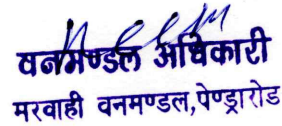 वनमण्डल अधिकारी
मरवाही वनमण्डल,पेण्ड्रारोड